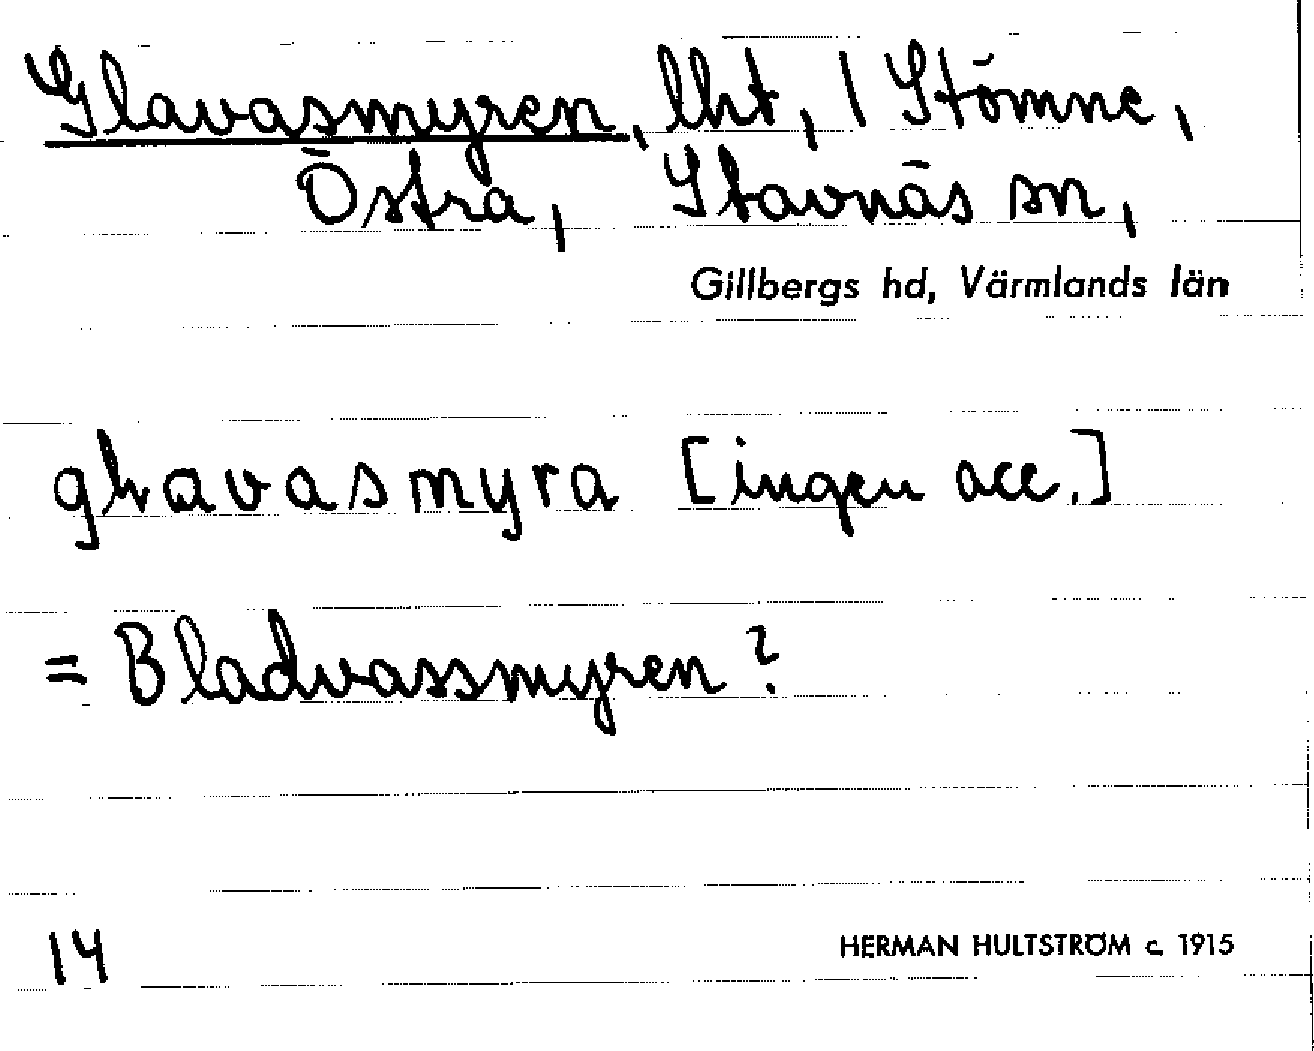 Glavasmyren, lht, 1 Stömne,
Östra, Stavnäs sn,
Gillbergs hd, Värmlands län
glavasmyra [ingen acc.]
= Bladvassmyren?
14
HERMAN HULTSTRÖM c. 1915